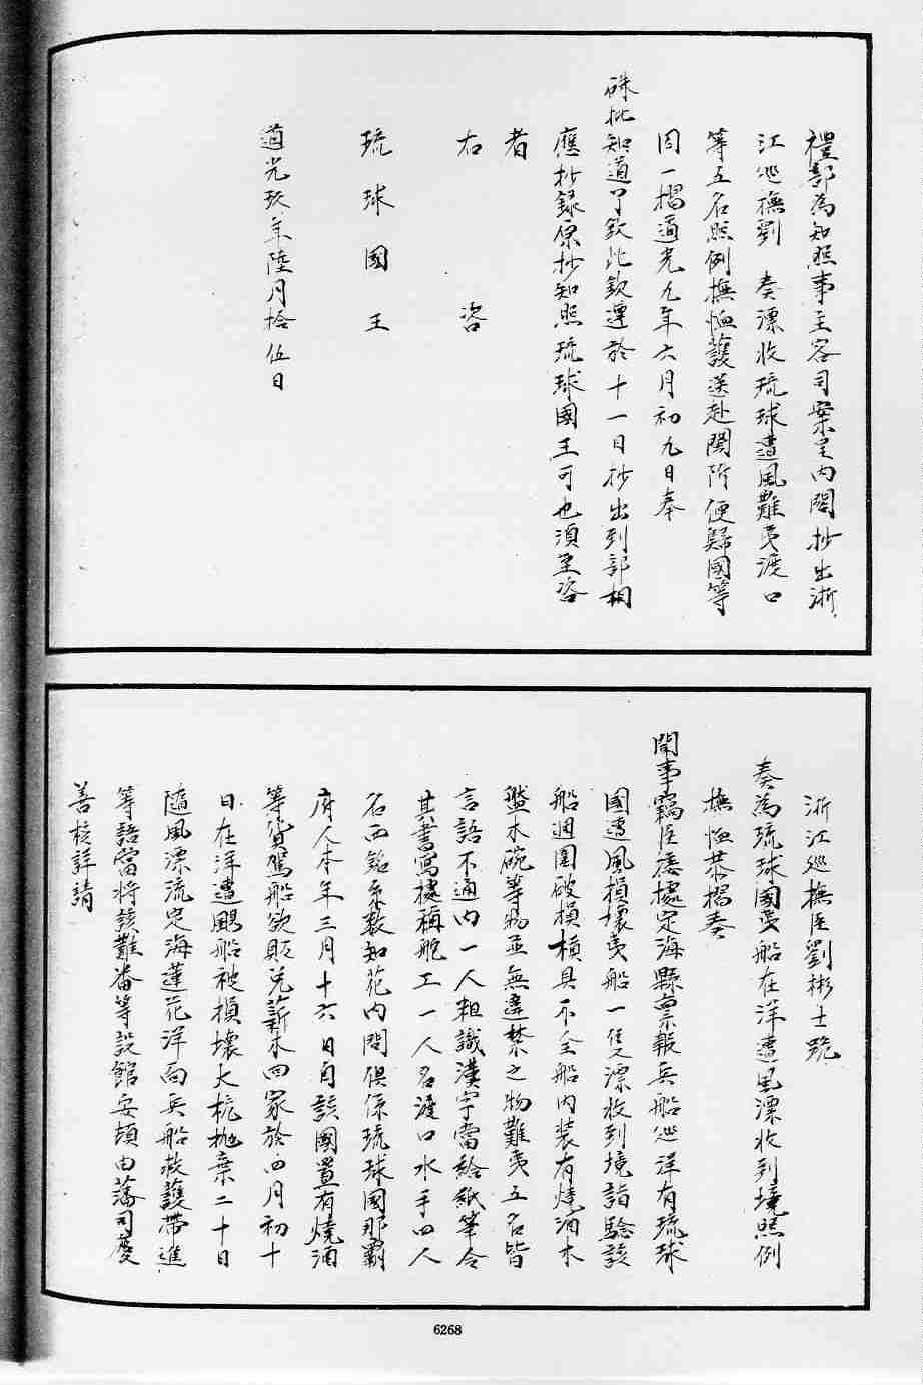 禮部為知照事主客司案呈內閣抄出浙
江巡撫劉 奏漂收琉球遭風難夷渡口
等五名照例撫恤護送赴閩附便歸國等
因一摺道光九年六月初九日奉
硃批知道了欽此欽遵於十一日抄出到部相
應抄錄原抄知照琉球國王可也須至咨
者
右 咨
琉球國王
道光玖年陸月拾伍日
浙江巡撫臣劉彬士跪
奏為琉球國夷船在洋遭風漂收到境照例
撫恤恭摺奏
聞事竊臣接據定海縣稟報兵船巡洋有琉球
國遭風損壞夷船一隻漂收到境詣驗該
船週圍破損槓具不全船內裝有燒酒木
盤木碗等物並無違禁之物難夷五名皆
言語不通內一人粗識漢字當給紙筆令
其書寫據稱舵工一人名渡口水手四人
名西銘系數知花內間俱係琉球國那霸
府人本年三月十六日自該國置有燒酒
等貨駕船欲販兌薪木回家於四月初十
日在洋遭颶船被損壞大桅拋棄二十日
隨風漂流定海蓮花洋面兵船救護帶進
等語當將該難番等設館安頓由藩司慶
善核詳請
6268